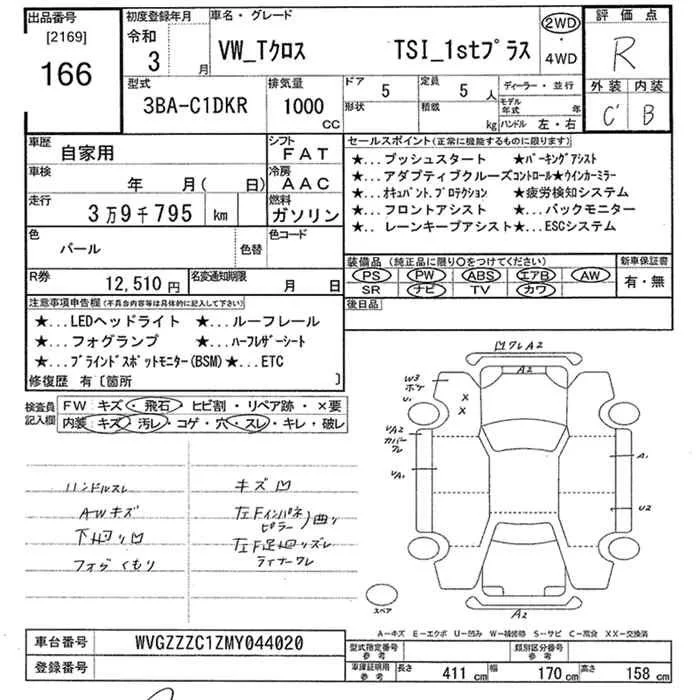 出品番号
[2169]
166
初度登録年月
令和
3 月
車名・グレード
VW_Tクロス TSI_1stプラス
2WD
・
4WD
評価点
R
外装 内装
C' B
型式
3BA-C1DKR
排気量
1000
CC
ドア 5
形状
定員 5 人
積載 kg
ディーラー・並行
モデル年式 年
ハンドル 左・右
車歴 自家用
シフト FAT
車検 年 月( 日)
冷房 AAC
走行 3万9千795 km
燃料 ガソリン
色 パール 色替
色コード
R券 12,510円
名変通知期限 月 日
セールスポイント(正常に機能するものに限ります)
★...プッシュスタート ★パーキングアシスト
★...アダプティブクルーズコントロール★ウインカーミラー
★...オキュパント.プロテクション ★疲労検知システム
★...フロントアシスト ★...バックモニター
★...レーンキープアシスト★...ESCシステム
装備品(純正品に限り○をつけてください)
PS PW ABS エアB AW
SR ナビ TV カワ
新車保証書
有・無
後日品
注意事項申告欄(不具合内容等は具体的に記入して下さい)
★...LEDヘッドライト ★...ルーフレール
★...フォグランプ ★...ハーフレザーシート
★...ブラインドスポットモニター(BSM)★...ETC
修復歴 有〔箇所 〕
検査員記入欄
FW キズ・飛石・ヒビ割・リペア跡・×要
内装 キズ・汚レ・コゲ・穴・スレ・キレ・破レ
ハンドルスレ
AWキズ
下廻り凹
フォグくもり
キズ凹
左Fインパネピラー)曲り
左F足廻リズレ
ライナーワレ
凹ワレA2
A2
W3
ボケ
U1
×
×
VA2
カバーワレ
VA1
A1
U2
A2
スペア
A-キズ E-エクボ U-凹み W-補修跡 S-サビ C-腐食 XX-交換済
車台番号 WVGZZZC1ZMY044020
登録番号
型式指定番号
参考
類別区分番号
参考
車庫証明用
参考
長さ 411 cm 幅 170 cm 高さ 158 cm